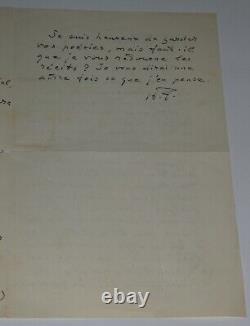 Je suis heureux de garder
vos poésies, mais faut-il
que je vous retourne les
récits ? Je vous dirai une
autre fois ce que j'en pense.
ebay